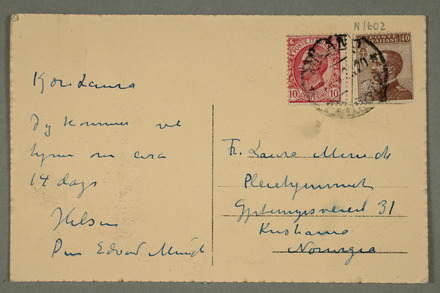 N 1602
Kjære Laura
Jeg kommer
hjem om ca
14 dage
Hilsen
Din Edvard Munch
Fr. Laura Munch
Pleiehjemmet
31
Kristiania
Norvegia
10 10
40